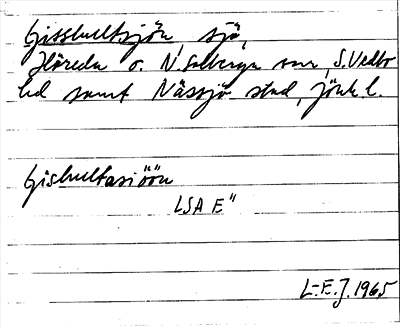 Gisshultsjön, sjö,
Höreda o. N. Solberga snr, S. Vedbo
hd samt Nässjö stad, Jönk. l.
Gishultasiöön
LSA E"
L-E.J. 1965